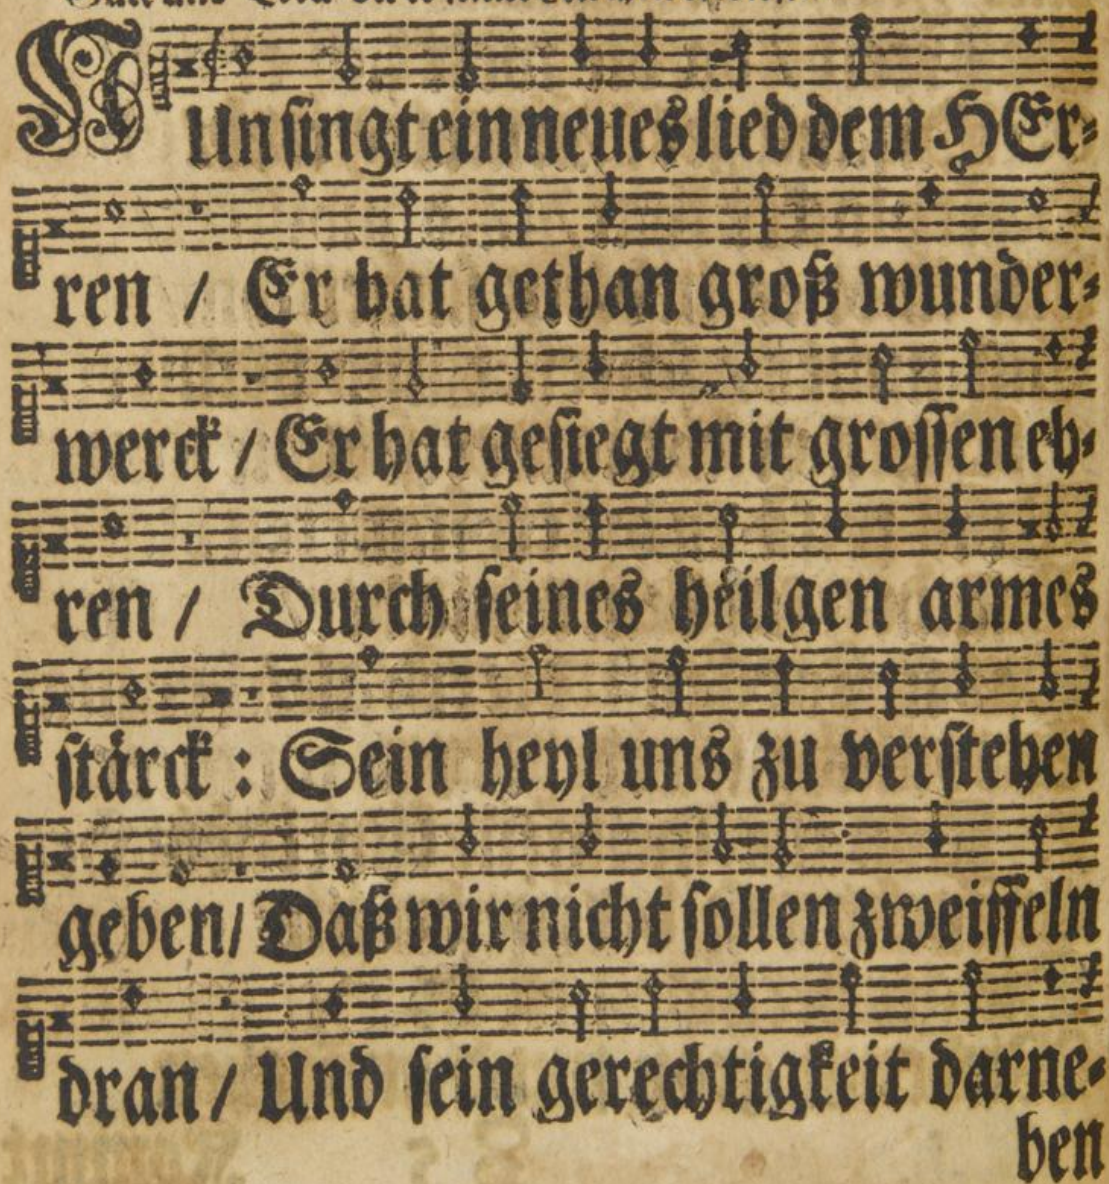 NUn singt ein neues lied dem HErr-
ren / Er hat gethan groß wunder-
werck / Er hat gesiegt mit grossen eh-
ren / Durch seines heilgen armes
stärck : Sein heyl uns zu verstehen
geben / Daß wir nicht sollen zweiffeln
dran / Und sein gerechtigkeit darne-
ben